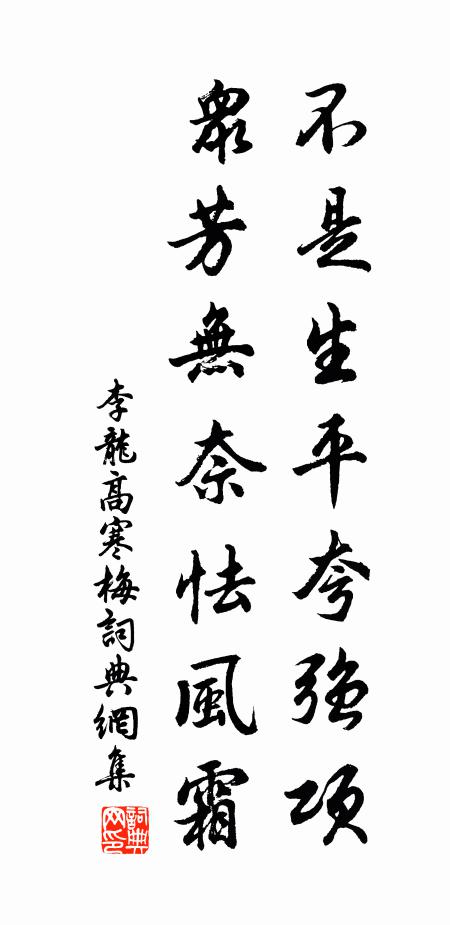 不是生平夸強項
眾芳無奈怯風霜
李龍高寒梅詞典網集
詞典网印